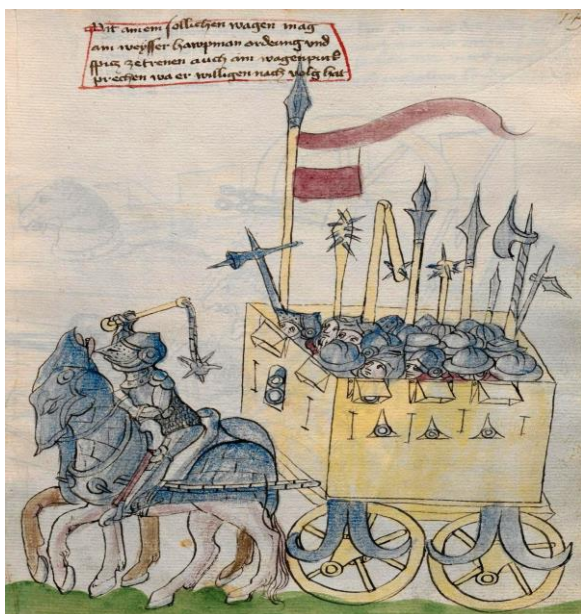 Mit ainem sollichen wagen mag
ain weysser hawpman ordnung vnd
spicz zetrenen auch ain wagenpurk
prechen wa er willigen nach volg hat